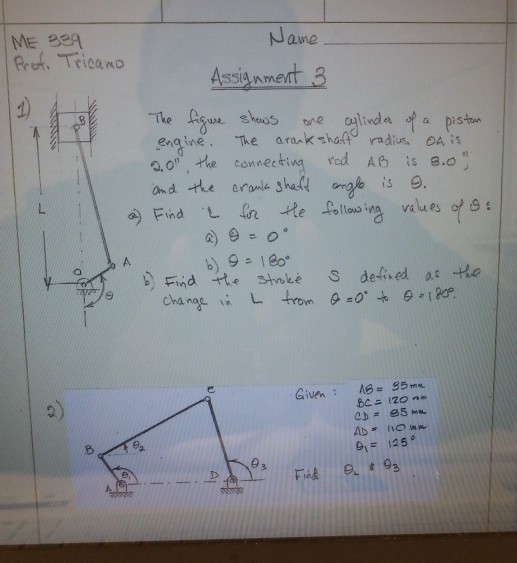 ME 339
Name
Prof. Tricamo
Assignment 3
1)
The figure shows one cylinder of a piston
engine. The crankshaft radius OA is
2.0", the connecting rod AB is 8.0",
and the crank shaft angle is θ.
a) Find L for the following values of θ:
a) θ = 0°
b) θ = 180°
b) Find the stroke S defined as the
change in L from θ=0° to θ=180°.
B
L
A
O
θ
2)
C
B
θ2
θ1
A
D
θ3
Given : AB = 35 mm
BC = 120 mm
CD = 85 mm
AD = 110 mm
θ1 = 125°
Find θ2 & θ3